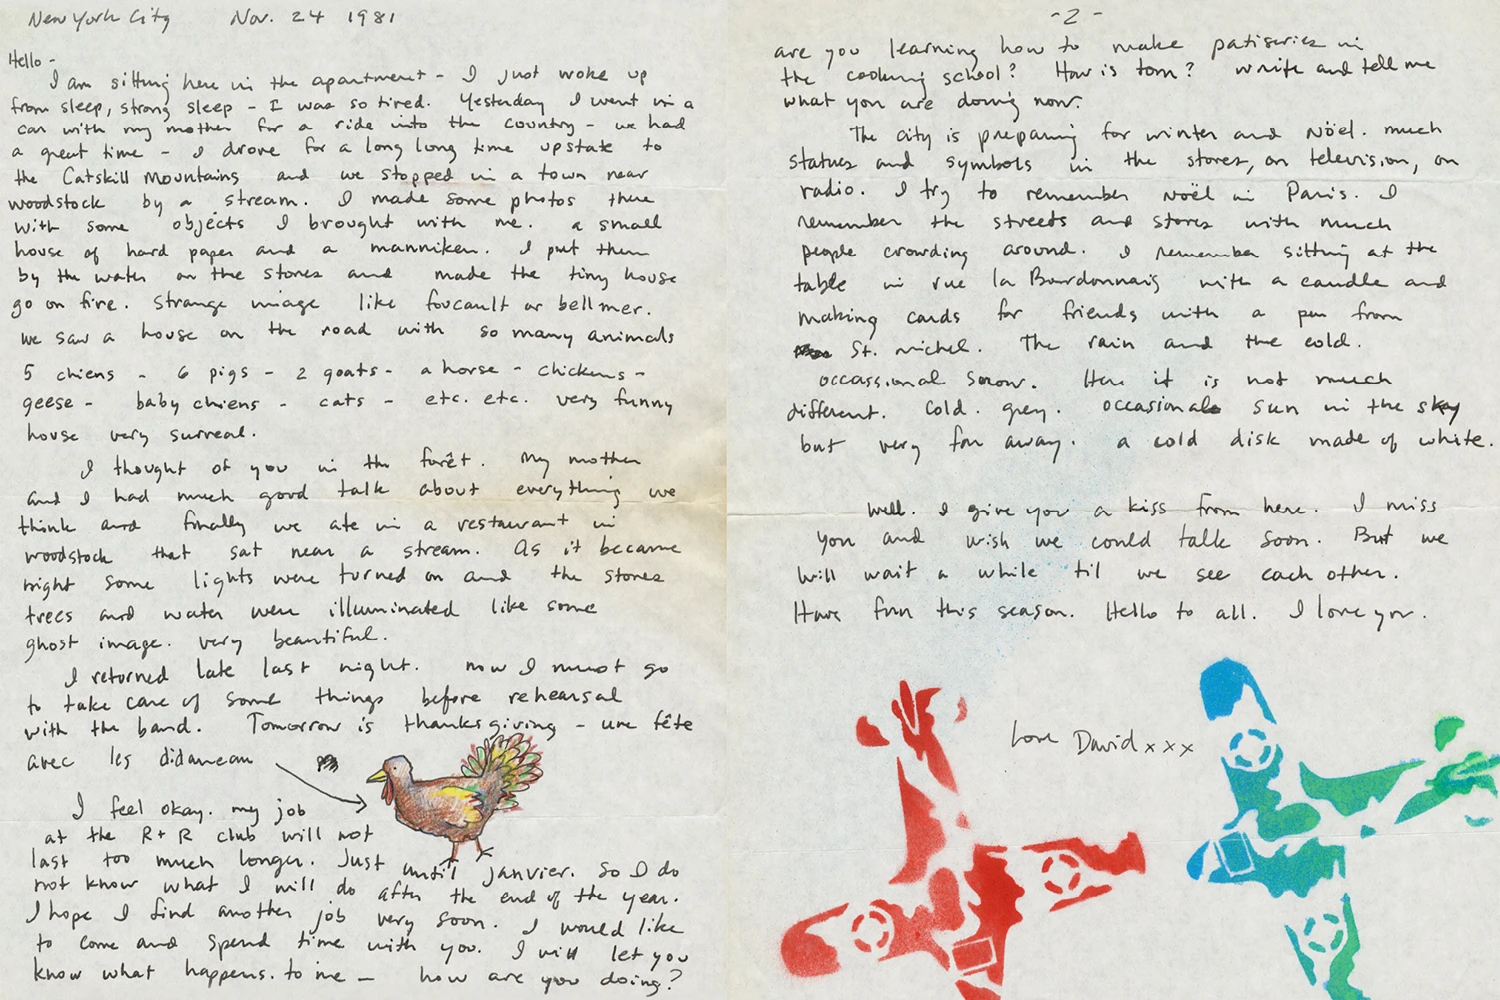 New York City Nov. 24 1981
Hello -
I am sitting here in the apartment - I just woke up
from sleep, strong sleep - I was so tired. Yesterday I went in a
car with my mother for a ride into the country - we had
a great time - I drove for a long long time upstate to
the Catskill Mountains and we stopped in a town near
woodstock by a stream. I made some photos there
with some objects I brought with me. a small
house of hard paper and a manniken. I put them
by the water on the stones and made the tiny house
go on fire. Strange image like foucault or bellmer.
we saw a house on the road with so many animals
5 chiens - 6 pigs - 2 goats - a horse - chickens -
geese - baby chiens - cats - etc. etc. very funny
house very surreal.
I thought of you in the forêt. My mother
and I had much good talk about everything we
think and finally we ate in a restaurant in
woodstock that sat near a stream. As it became
night some lights were turned on and the stones
trees and water were illuminated like some
ghost image. very beautiful.
I returned late last night. now I must go
to take care of some things before rehearsal
with the band. Tomorrow is thanksgiving - une fête
avec les didaneau
I feel okay. my job
at the R+R club will not
last too much longer. Just until janvier. So I do
not know what I will do after the end of the year.
I hope I find another job very soon. I would like
to come and spend time with you. I will let you
know what happens. to me - how are you doing?
-2-
are you learning how to make patiseries in
the cooking school? How is tom? write and tell me
what you are doing now.
The city is preparing for winter and Nöel. much
statues and symbols in the stores, on television, on
radio. I try to remember Noël in Paris. I
remember the streets and stores with much
people crowding around. I remember sitting at the
table in rue la Bourdonnais with a candle and
making cards for friends with a pen from
St. Michel. The rain and the cold.
occassional snow. Here it is not much
different. Cold. grey. occasional sun in the sky
but very far away. a cold disk made of white.
Well. I give you a kiss from here. I miss
you and wish we could talk soon. But we
will wait a while til we see each other.
Have fun this season. Hello to all. I love you.
Love David xxx